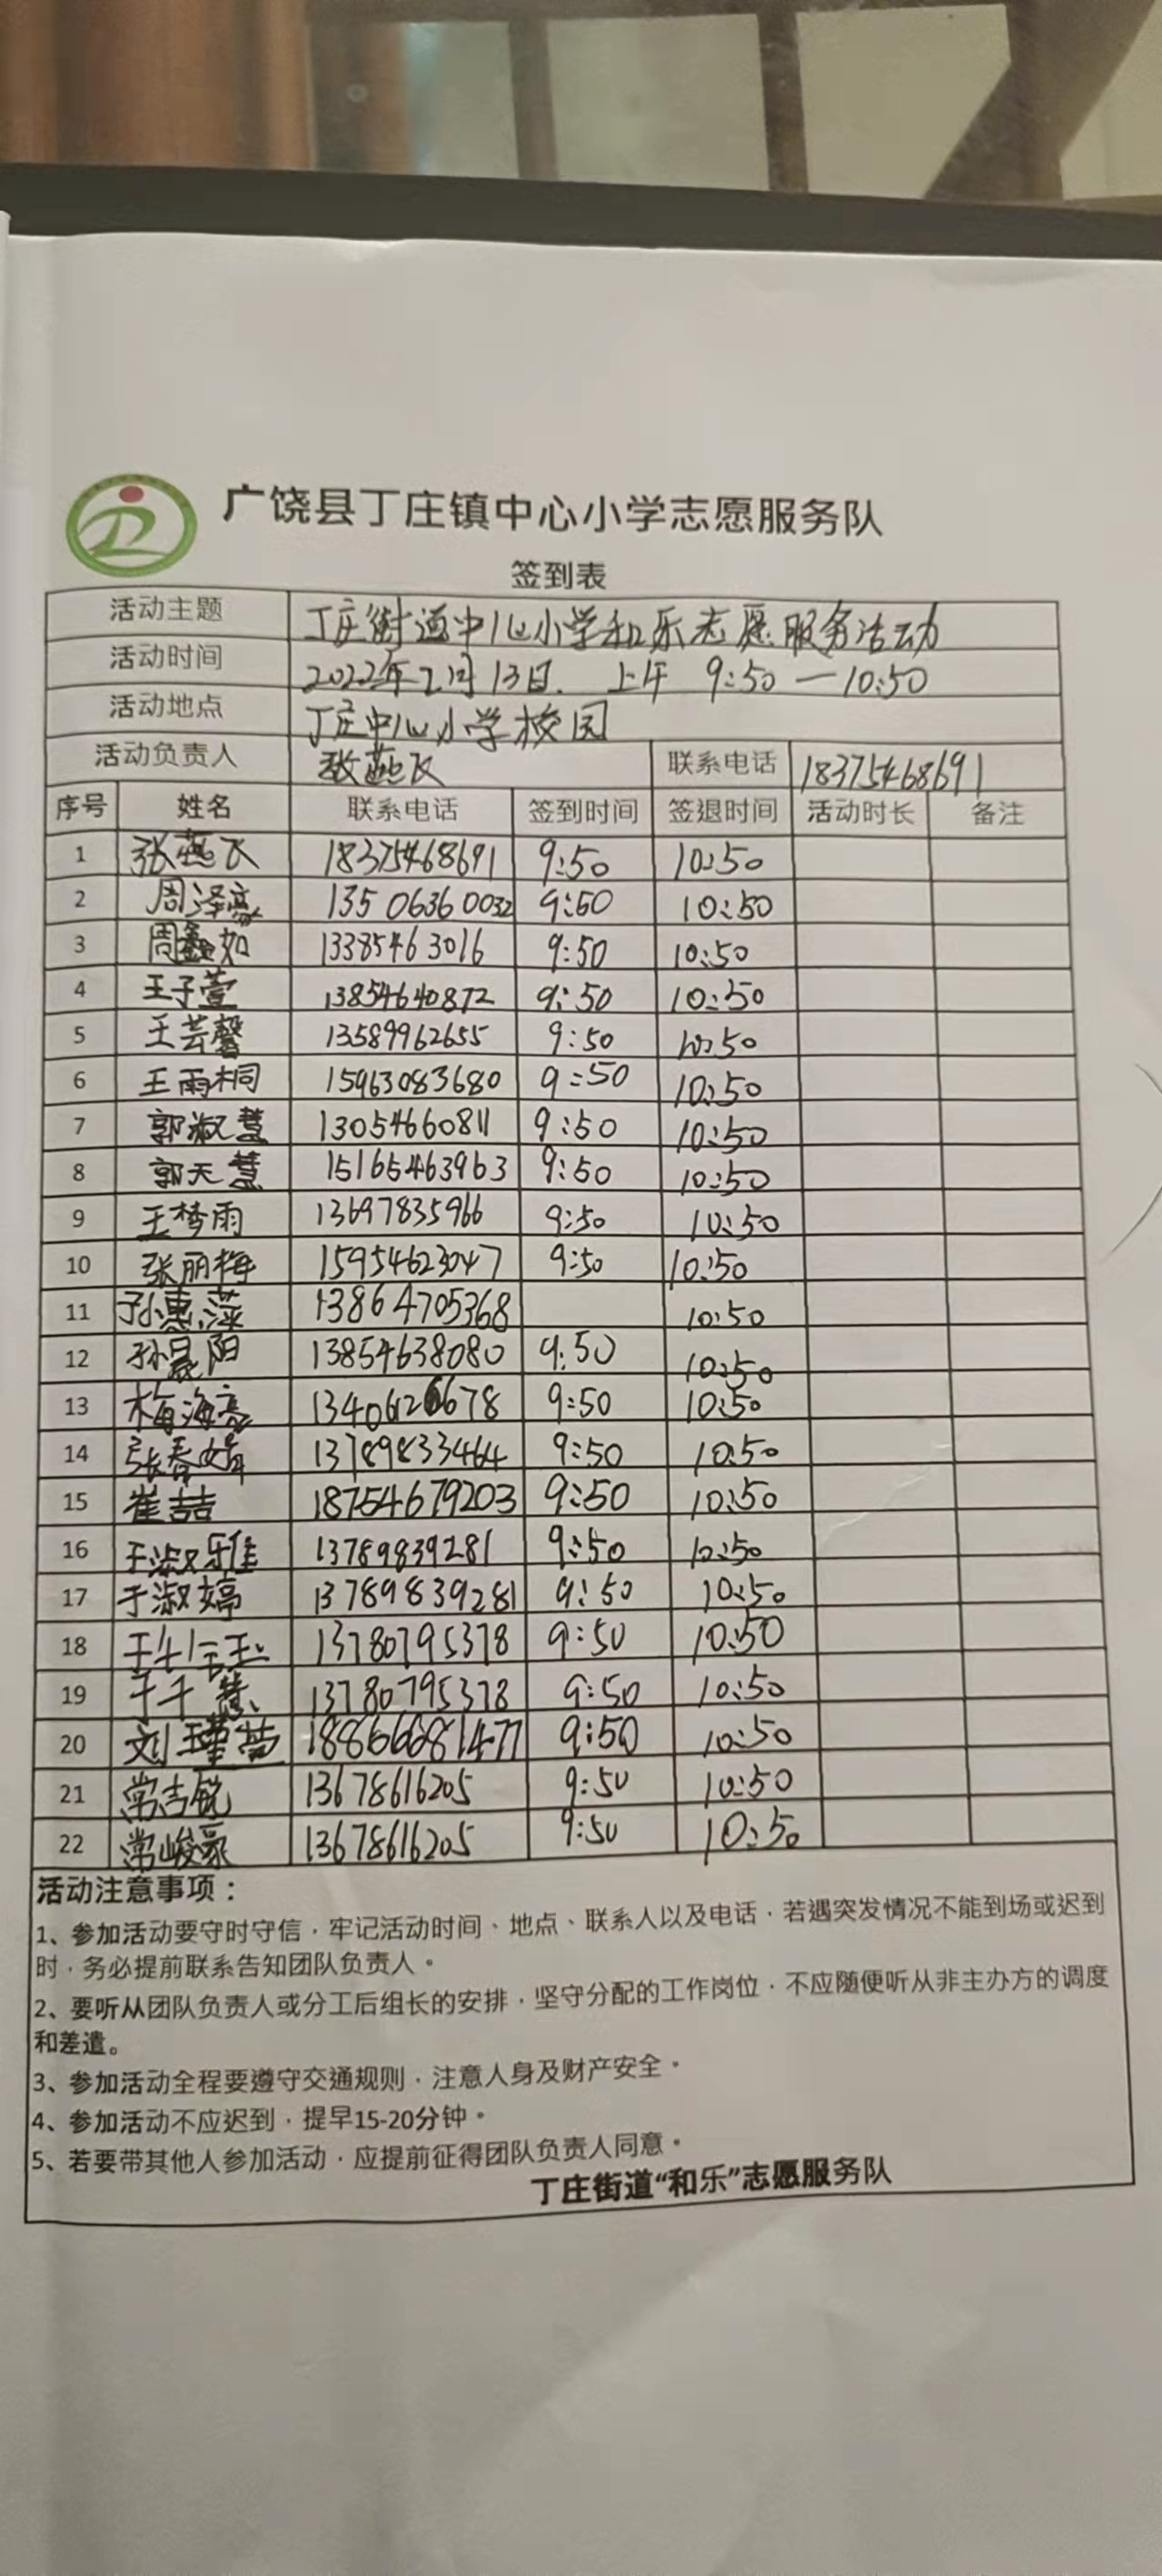 广饶县丁庄镇中心小学志愿服务队
签到表
活动主题 丁庄街道中心小学和乐志愿服务活动
活动时间 2022年2月13日. 上午 9:50 — 10:50
活动地点 丁庄中心小学校园
活动负责人 张燕飞 联系电话 18375468691
序号 姓名 联系电话 签到时间 签退时间 活动时长 备注
1 张燕飞 18375468691 9:50 10:50
2 周泽亮 13506360032 9:50 10:50
3 周鑫如 13385463016 9:50 10:50
4 王子萱 13854640872 9:50 10:50
5 王芸馨 13589962655 9:50 10:50
6 王雨桐 15963083680 9:50 10:50
7 郭淑慧 13054660811 9:50 10:50
8 郭天慧 15165463963 9:50 10:50
9 王梦雨 13697835966 9:50 10:50
10 张丽梅 15954623047 9:50 10:50
11 孙惠萍 13864705368 10:50
12 孙晟阳 13854638080 9:50 10:50
13 梅海亮 13406126678 9:50 10:50
14 张春娟 13789833464 9:50 10:50
15 崔喆 18754679203 9:50 10:50
16 于淑雅 13789839281 9:50 10:50
17 于淑婷 13789839281 9:50 10:50
18 13780795378 9:50 10:50
19 于千慧 13780795378 9:50 10:50
20 刘瑾萱 18866681477 9:50 10:50
21 常吉锐 13678616205 9:50 10:50
22 常峻豪 13678616205 9:50 10:50
活动注意事项：
1、参加活动要守时守信，牢记活动时间、地点、联系人以及电话，若遇突发情况不能到场或迟到
时，务必提前联系告知团队负责人。
2、要听从团队负责人或分工后组长的安排，坚守分配的工作岗位，不应随便听从非主办方的调度
和差遣。
3、参加活动全程要遵守交通规则，注意人身及财产安全。
4、参加活动不应迟到，提早15-20分钟。
5、若要带其他人参加活动，应提前征得团队负责人同意。
丁庄街道“和乐”志愿服务队